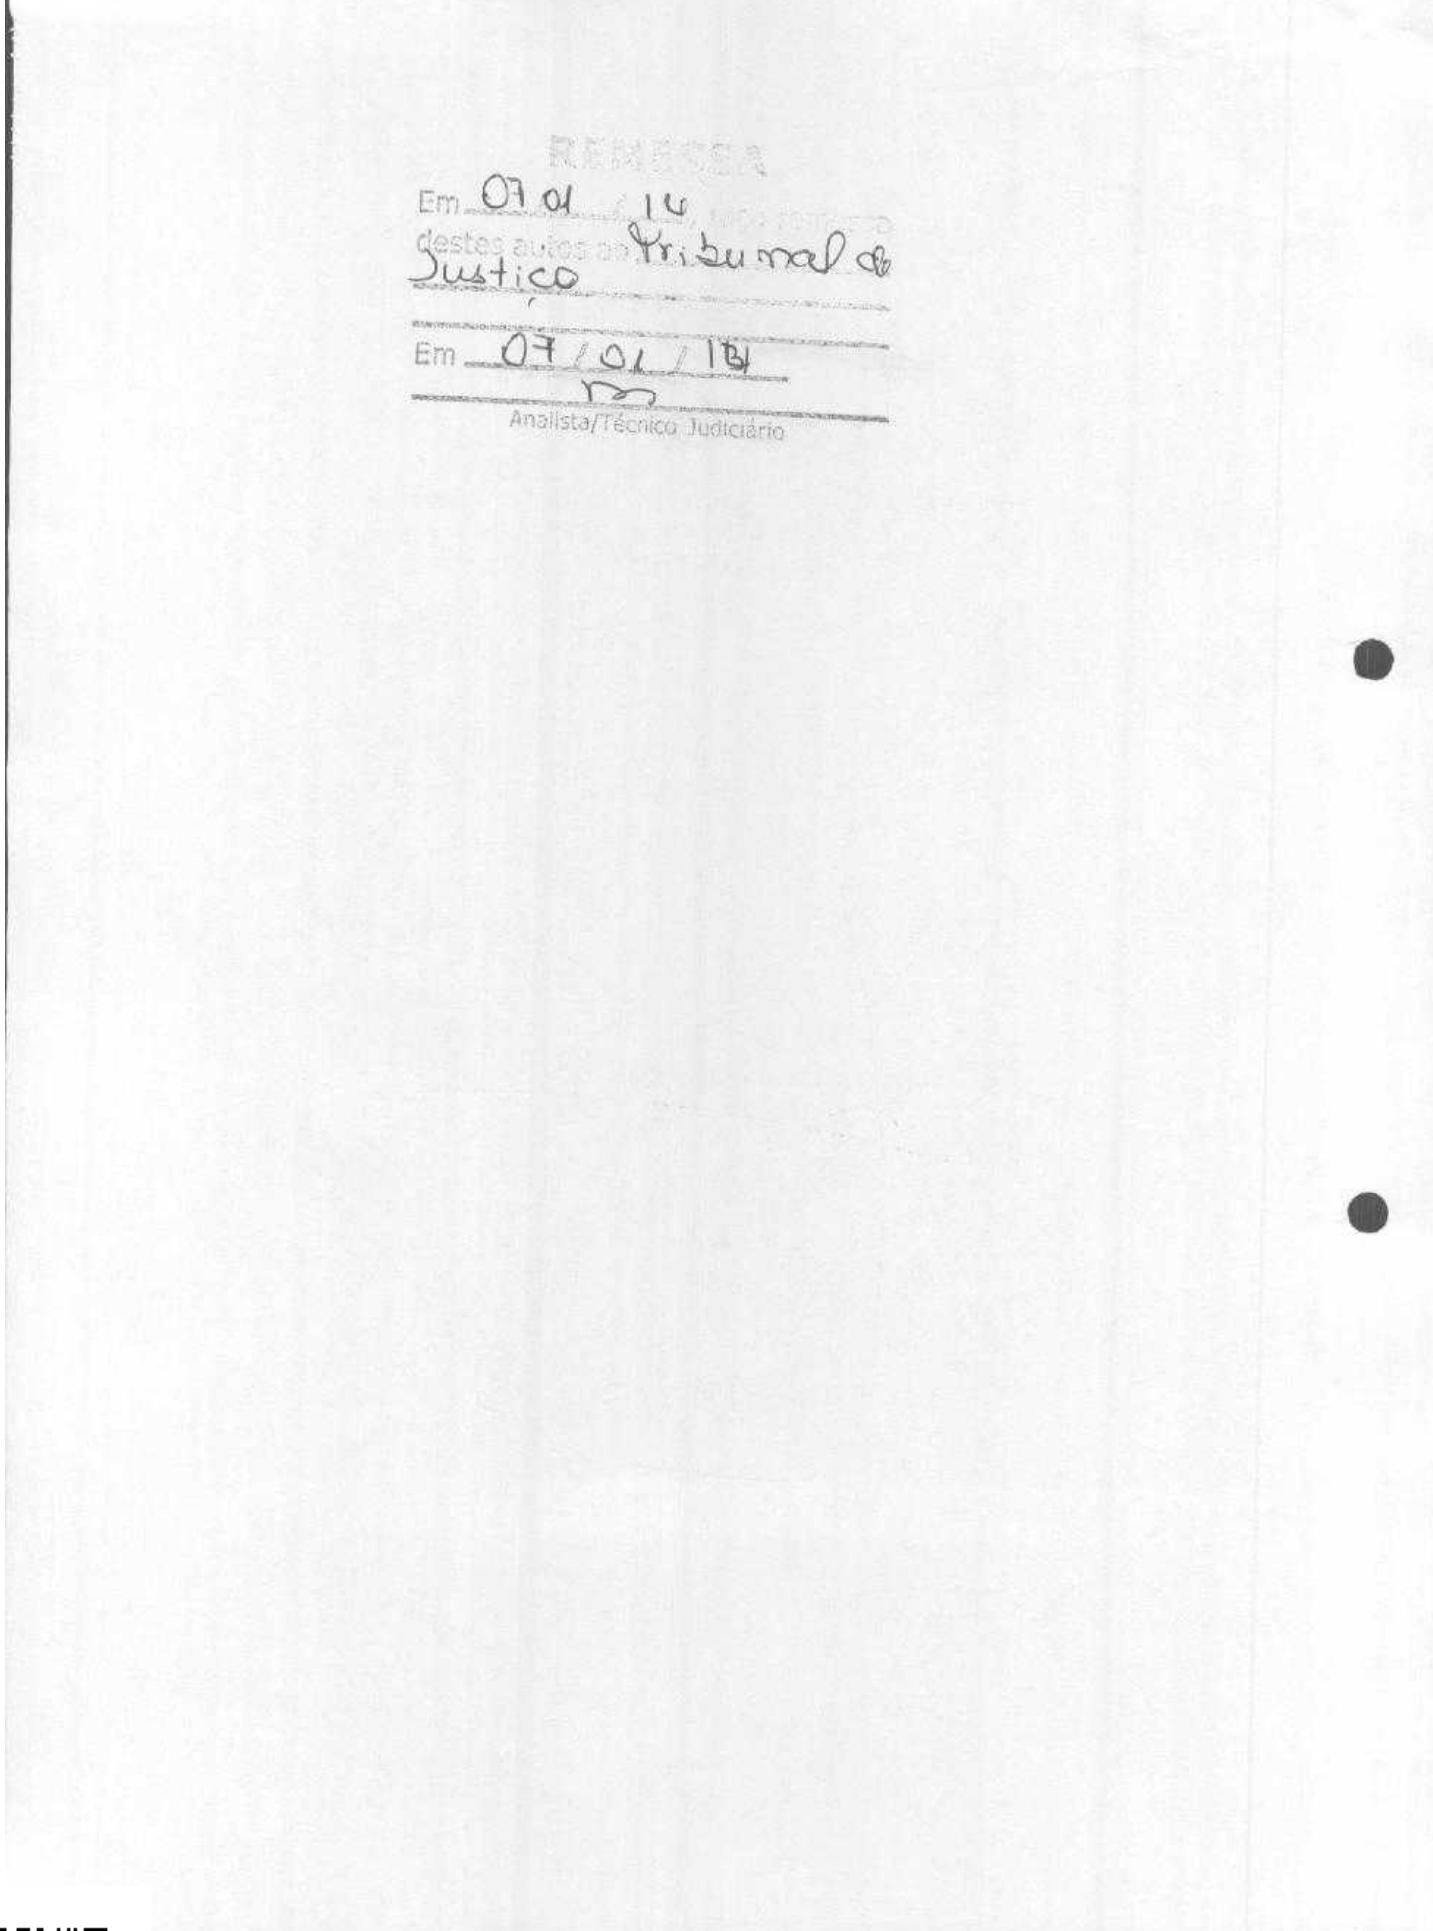 REMESSA
Em 07 01 / 14, faço remessa
destes autos ao Tribunal de
Justiça
Em 07 / 01 / 14
Analista/Técnico Judiciário